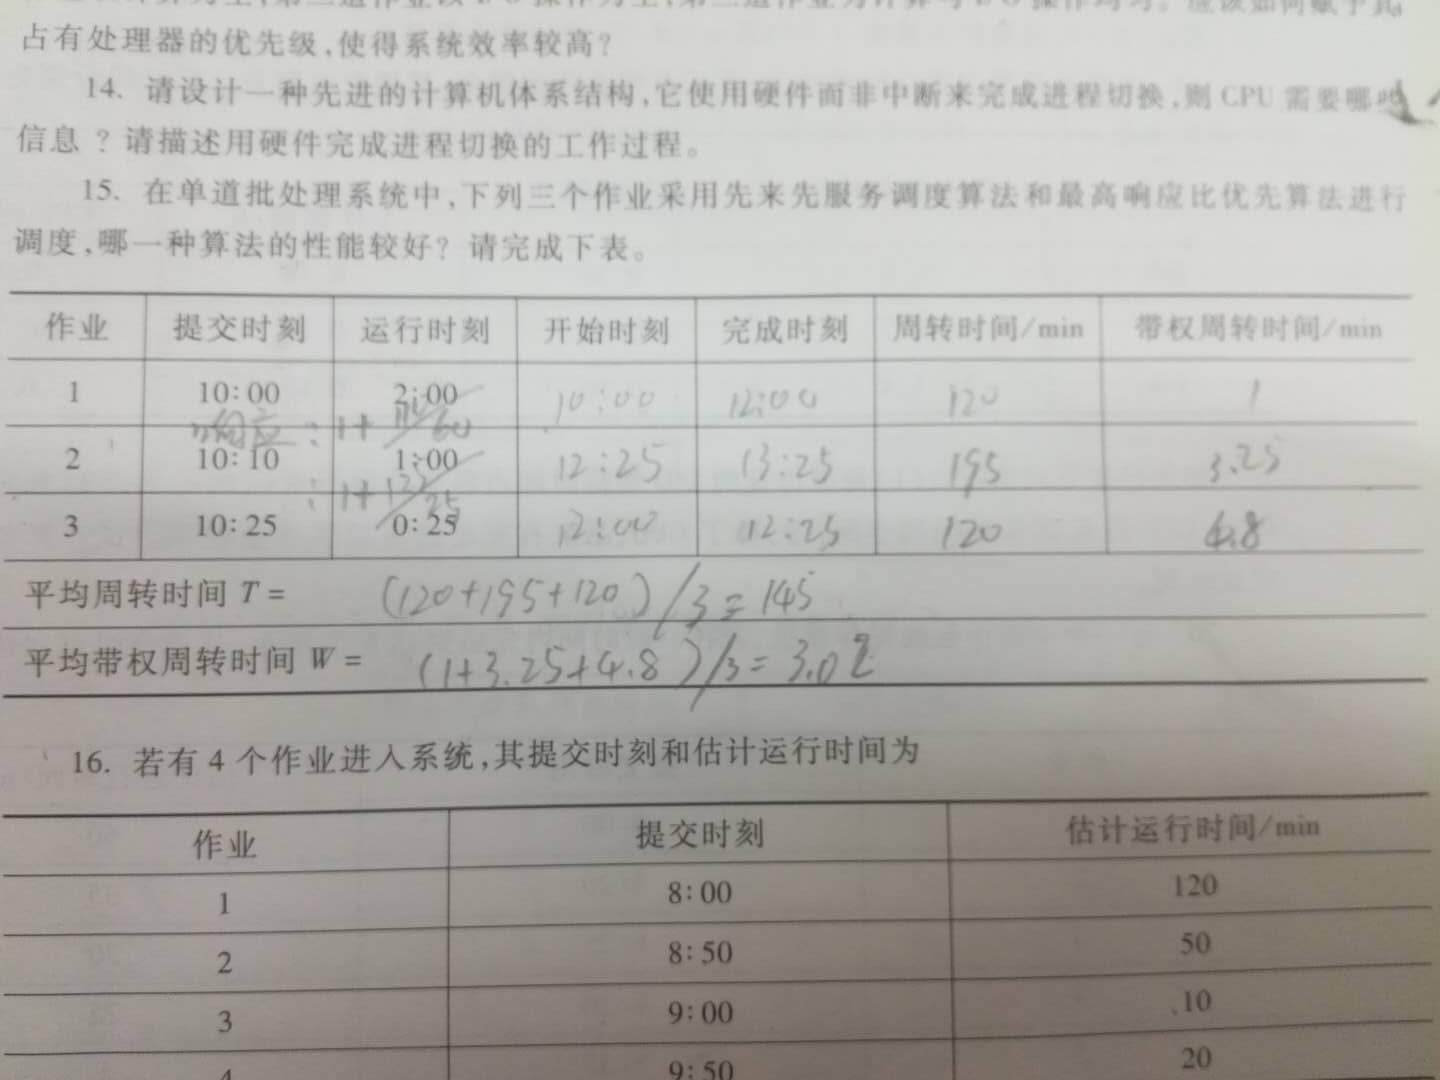 占有处理器的优先级,使得系统效率较高?
14. 请设计一种先进的计算机体系结构,它使用硬件而非中断来完成进程切换,则 CPU 需要哪些
信息 ? 请描述用硬件完成进程切换的工作过程。
15. 在单道批处理系统中,下列三个作业采用先来先服务调度算法和最高响应比优先算法进行
调度,哪一种算法的性能较好? 请完成下表。
作业 提交时刻 运行时刻 开始时刻 完成时刻 周转时间/min 带权周转时间/min
1 10:00 2:00 10:00 12:00 120 1
响应 : 1+ 110/60
2 10:10 1:00 12:25 13:25 195 3.25
: 1+ /25
3 10:25 0:25 12:00 12:25 120 4.8
平均周转时间 T = (120+195+120)/3=145
平均带权周转时间 W = (1+3.25+4.8)/3=3.02
16. 若有 4 个作业进入系统,其提交时刻和估计运行时间为
作业 提交时刻 估计运行时间/min
1 8:00 120
2 8:50 50
3 9:00 10
4 9:50 20